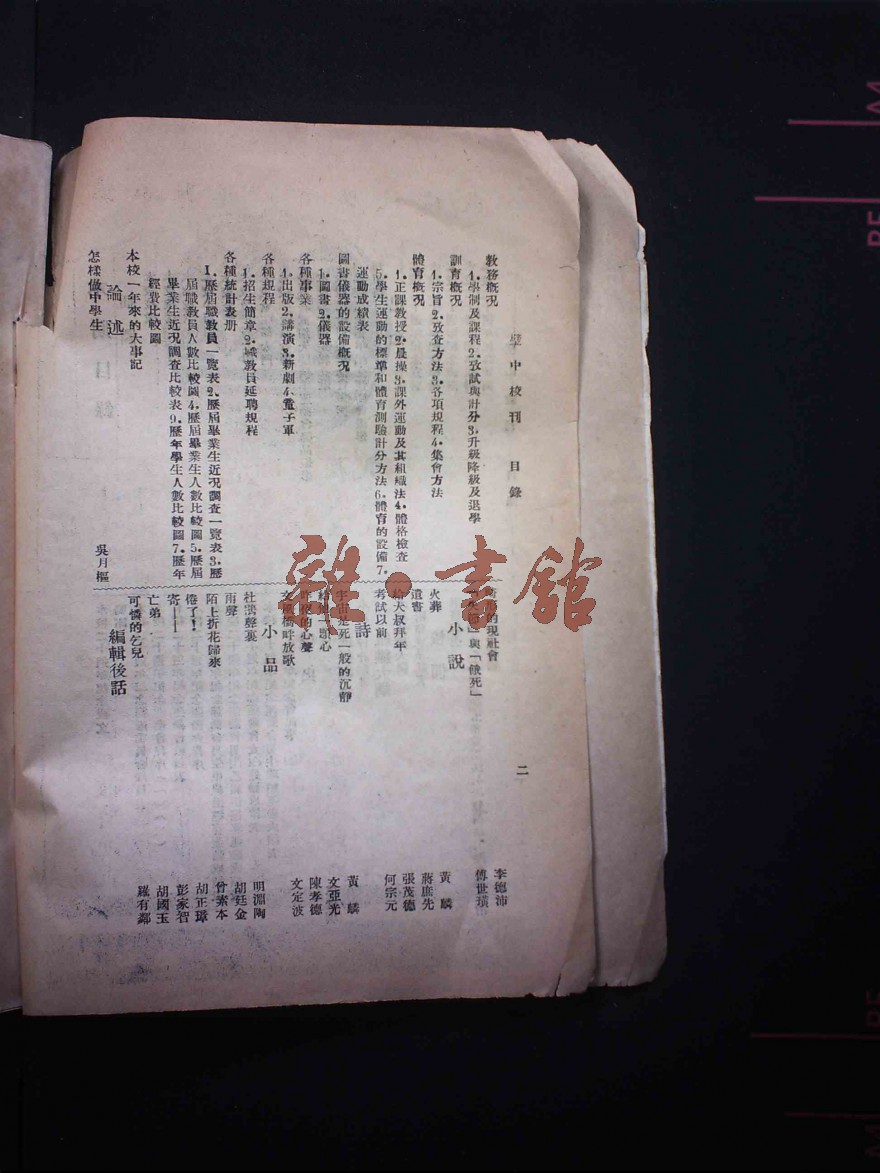 璧中校刊 目錄
二
教務概況
1.學制及課程2.攷試與計分3.升級降級及退學
訓育概況
1.宗旨2.攷查方法3.各項規程4.集會方法
體育概況
1.正課教授2.晨操3.課外運動及其組織法4.體格檢查
5.學生運動的標準和體育測驗計分方法6.體育的設備7.
運動成績表
圖書儀器的設備概況
1.圖書2.儀器
各種事業
1.出版2.講演3.新劇4.童子軍
各種規程
1.招生簡章2.職教員延聘規程
各種統計表册
1.歷屆職教員一覽表2.歷屆畢業生近況調查一覽表3.歷
屆職教員人數比較圖4.歷屆畢業生人數比較圖5.歷屆
畢業生近況調查比較表9.歷年學生人數比較圖7.歷年
經費比較圖
本校一年來的大事記
論述
怎樣做中學生 吳月樞
的現社會 李德沛
與「餓死」 傅世璜
小說
火葬 黃麟
遺書 蔣庶先
給大叔拜年 張茂德
考試以前 何宗元
詩
宇宙是死一般的沉靜 黃麟
一顆心 文亞光
昨夜的心聲 陳孝德
橋畔放歌 文定波
小品
杜鵑聲裏 明淵陶
雨聲 胡廷金
陌上折花歸來 曾素本
倦了! 胡正璋
寄—— 彭家智
亡弟 胡國玉
可憐的乞兒 羅有鄰
編輯後話
雜·書館